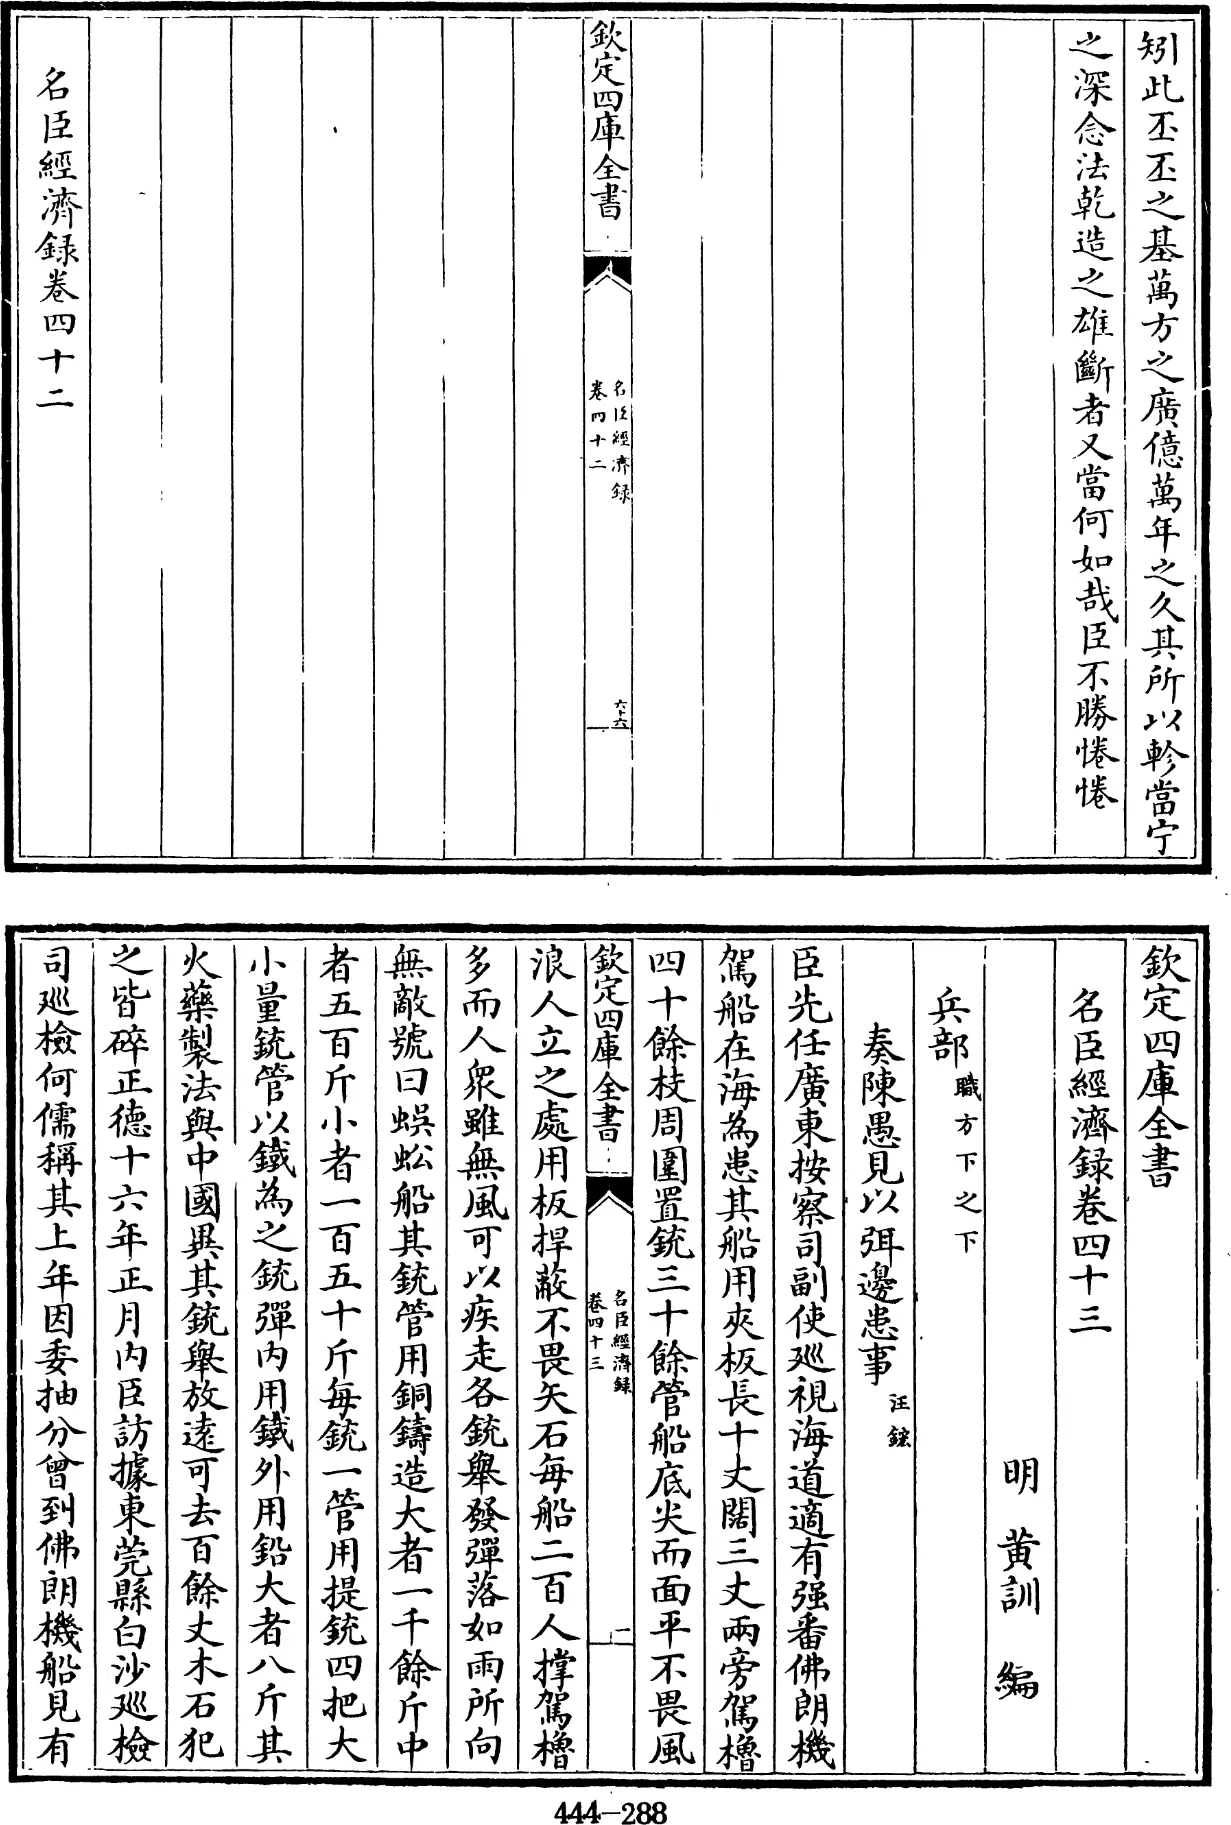 矧此丕丕之基萬方之廣億萬年之久其所以軫當宁
之深念法乾造之雄斷者又當何如哉臣不勝惓惓
欽定四庫全書
名臣經濟録
卷四十二
六十六
名臣經濟録卷四十二
欽定四庫全書
名臣經濟録卷四十三
明 黄訓 編
兵部職方下之下
奏陳愚見以弭邊患事汪鋐
臣先任廣東按察司副使廵視海道適有强番佛朗機
駕船在海為患其船用夾板長十丈闊三丈兩旁駕櫓
四十餘枝周圍置銃三十餘管船底尖而面平不畏風
欽定四庫全書
名臣經濟録
卷四十三
浪人立之處用板捍蔽不畏矢石每船二百人撑駕櫓
多而人衆雖無風可以疾走各銃舉發彈落如雨所向
無敵號曰蜈蚣船其銃管用銅鑄造大者一千餘斤中
者五百斤小者一百五十斤每銃一管用提銃四把大
小量銃管以鐵為之銃彈内用鐵外用鉛大者八斤其
火藥製法與中國異其銃舉放逺可去百餘丈木石犯
之皆碎正德十六年正月内臣訪據東莞縣白沙廵檢
司廵檢何儒稱其上年因委抽分曾到佛朗機船見有
444-288